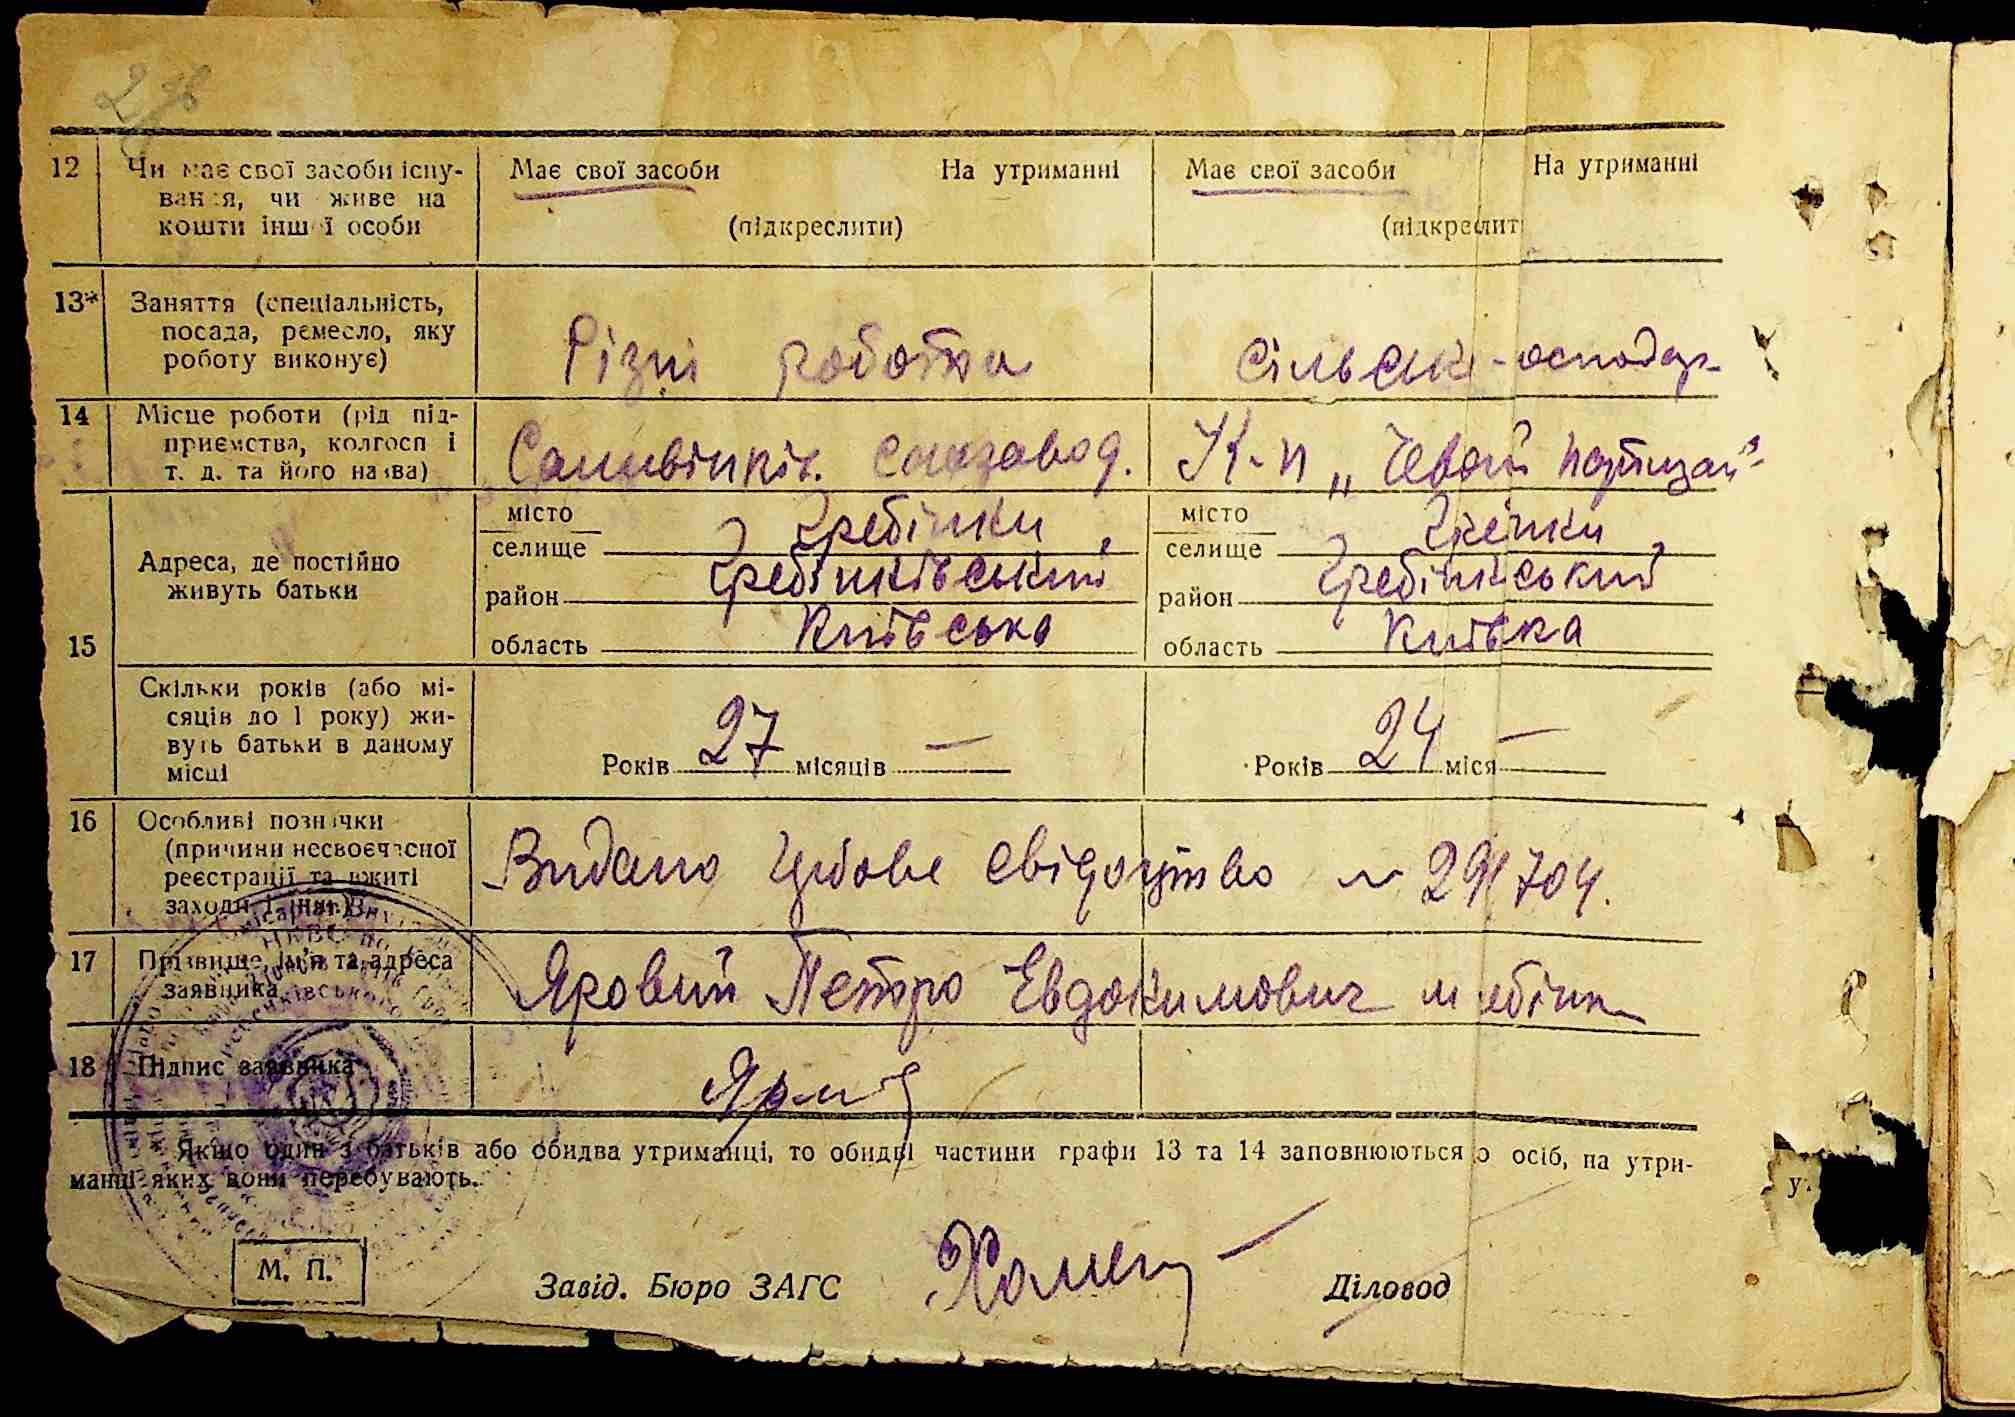 12 Чи має свої засоби існу- Має свої засоби На утриманні Має свої засоби На утриманні
вання, чи живе на
кошти іншої особи (підкреслити) (підкреслит
13* Заняття (спеціальність,
посада, ремесло, яку
роботу виконує) Різні роботи сільськ -осподар-
14 Місце роботи (рід під-
приємства, колгосп і
т. д. та його назва) Саливінків. сахзавод. К-п „Чевоний партизан"
15 Адреса, де постійно
живуть батьки
місто місто
селище Гребінки, селище Гребінки,
район Гребінківський район Гребінківський
область Київська область Київка
Скільки років (або мі-
сяців до 1 року) жи-
вуть батьки в даному
місці Років 27 місяців — Років 24 міся —
16 Особливі позначки
(причини несвоєчасної
реєстрації та вжиті
заходи і інш.) Видано свідоцтво № 291704.
17 Прізвище, ім'я та адреса
заявника Яровий Петро Евдокимович
18 Підпис заявника
Якщо один з батьків або обидва утриманці, то обидві частини графи 13 та 14 заповнюються осіб, на утри-
манці яких вони перебувають.
М. П. Завід. Бюро ЗАГС Діловод